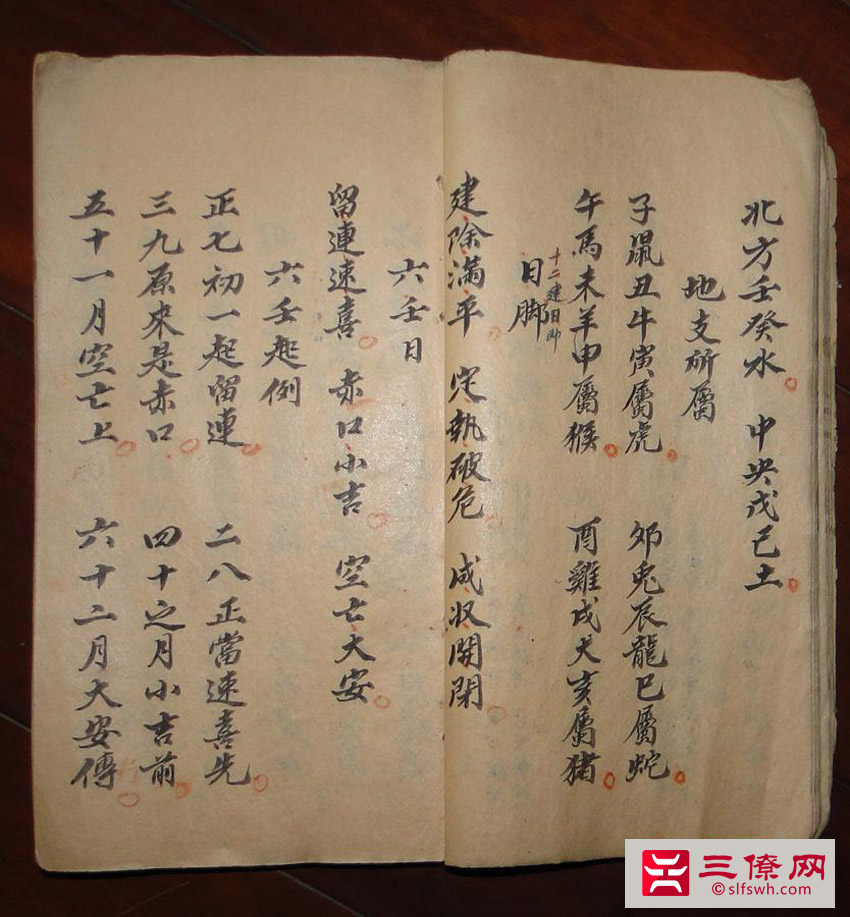 北方壬癸水　中央戊己土
地支所屬
子鼠丑牛寅屬虎　卯兎辰龍巳屬蛇
午馬未羊申屬猴　酉雞戌犬亥屬猪
十二建日脚
日脚
建除滿平　定執破危　成收開閉
六壬日
留連速喜　赤口小吉　空亡大安
六壬起例
正七初一起留連　二八正當速喜先
三九原來是赤口　四十之月小吉前
五十一月空亡上　六十二月大安傳
三僚网
©slfswh.com